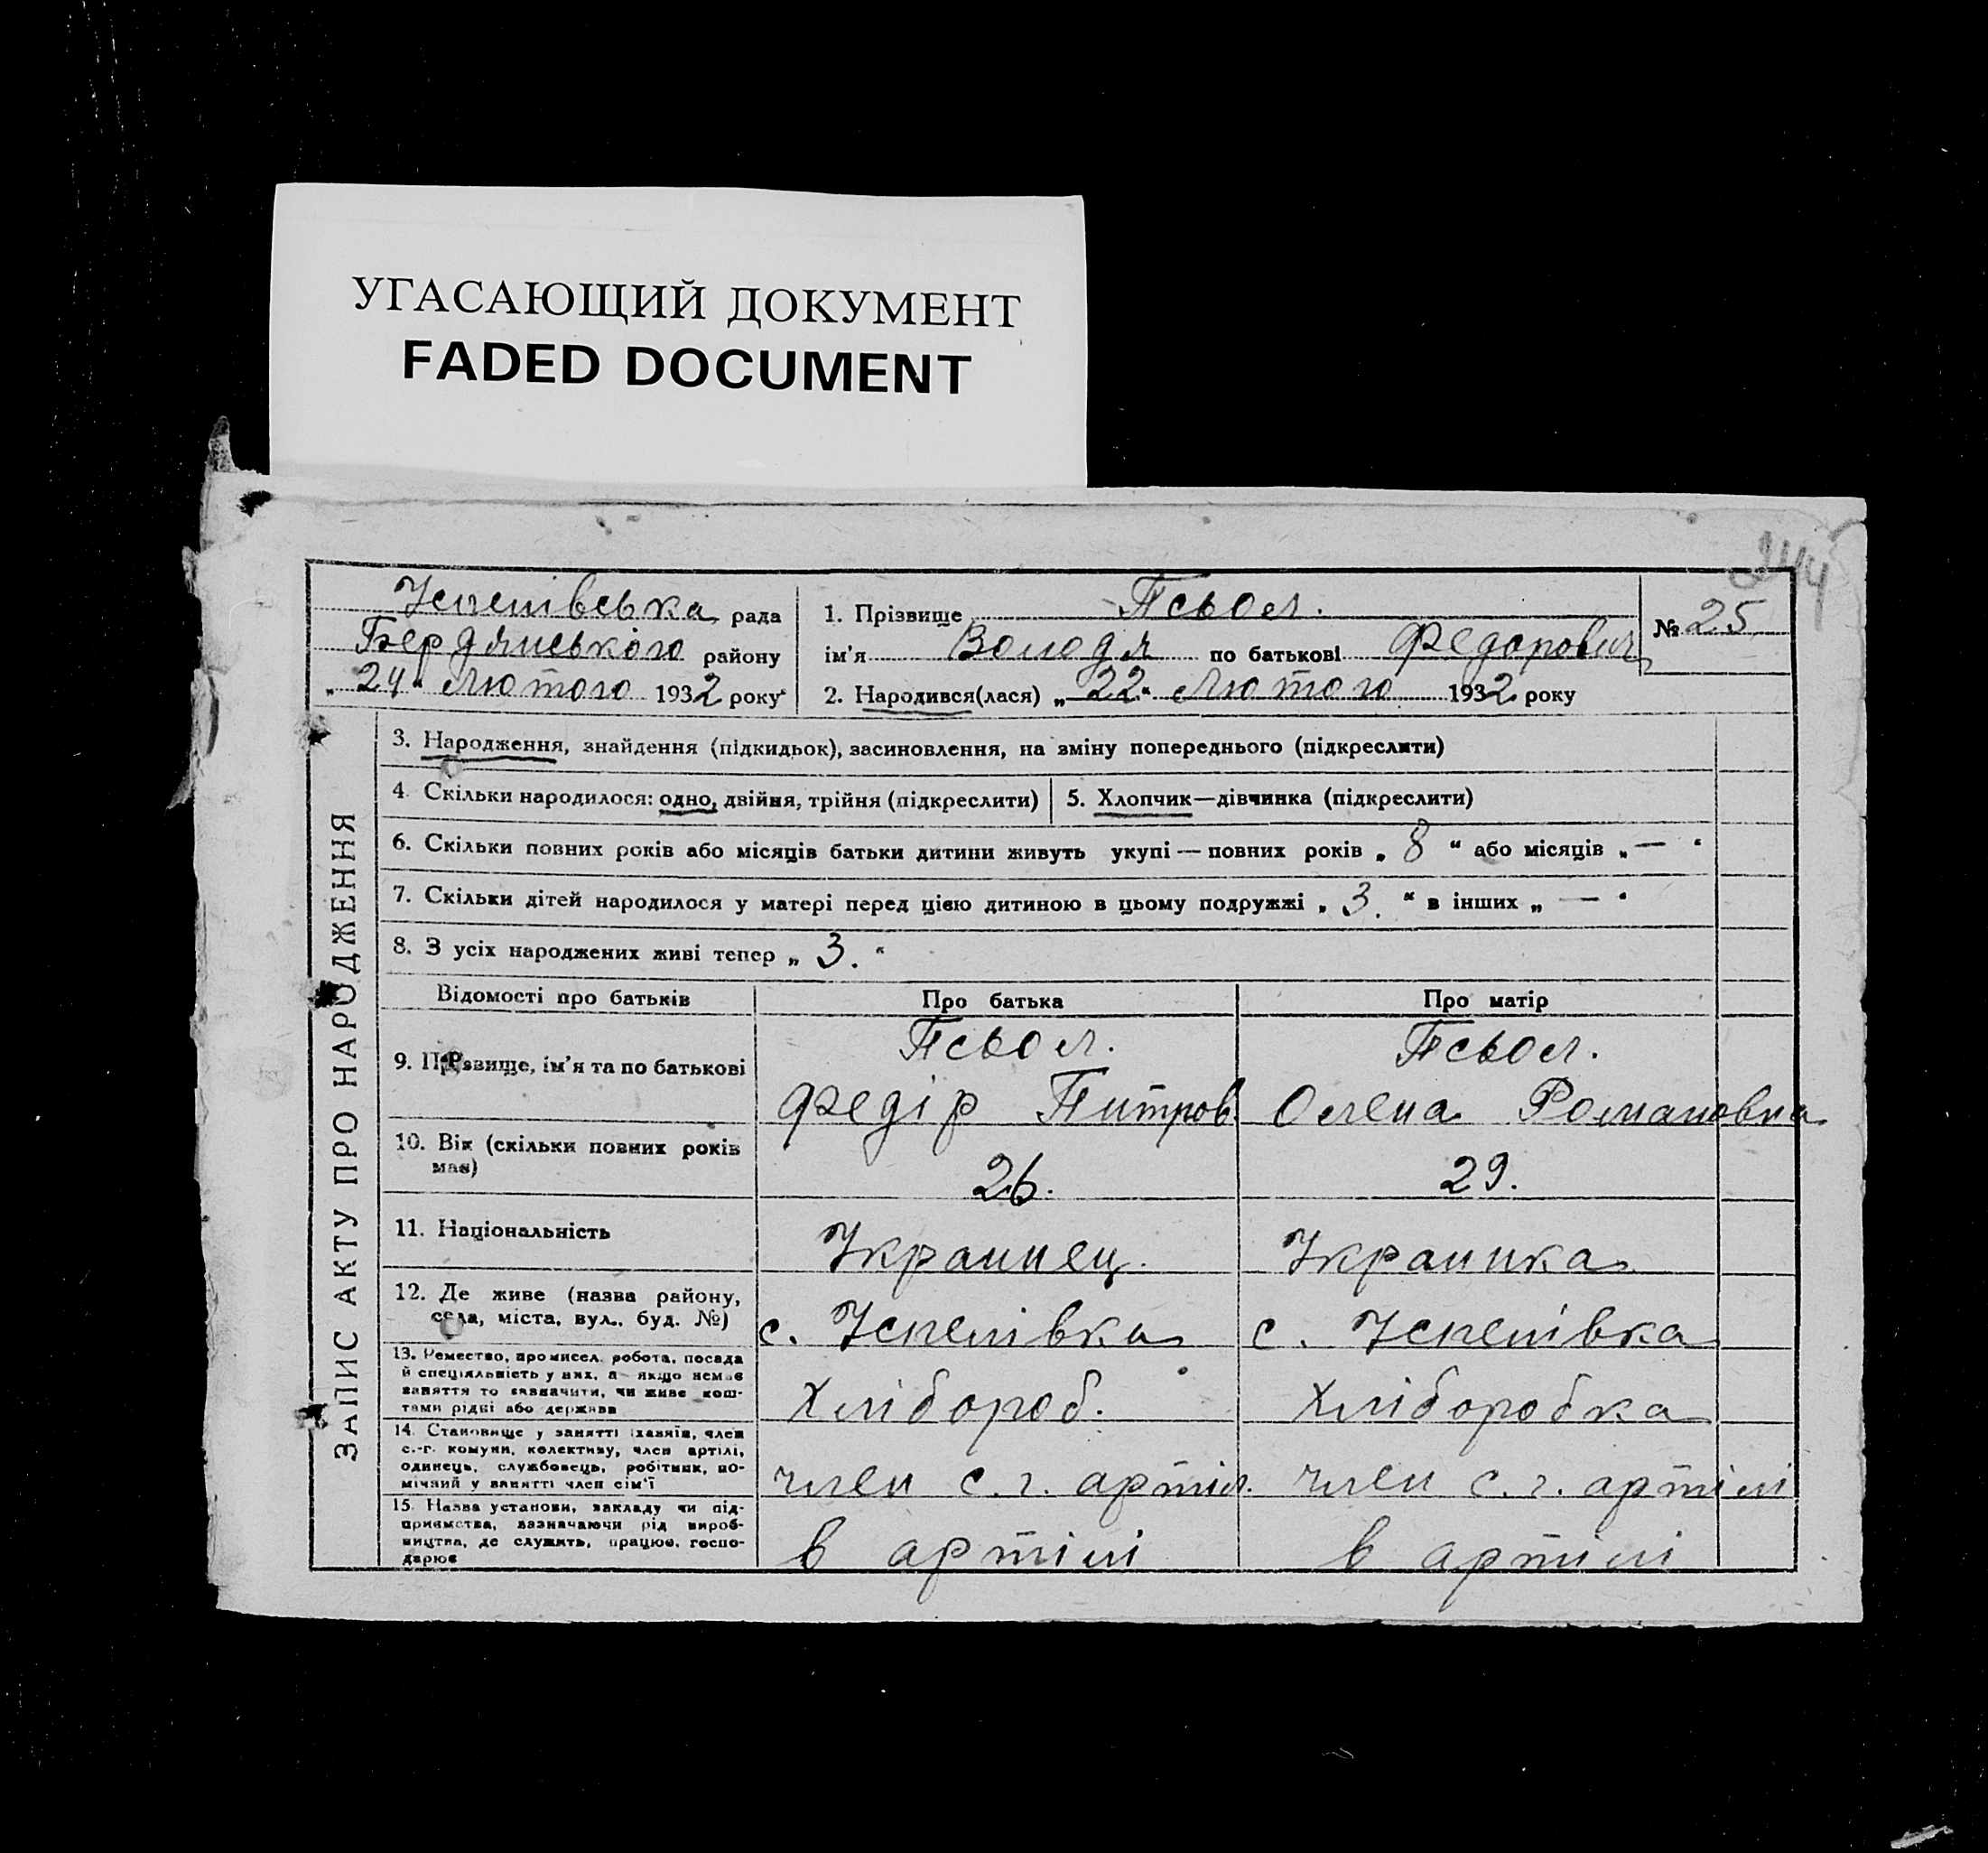 УГАСАЮЩИЙ ДОКУМЕНТ
FADED DOCUMENT
244
Успенівська рада
Бердянського району
„24“ Лютого 1932 року
1. Прізвище Псьол.
ім'я Володя по батькові Федорович
2. Народився(лася) „22“ Лютого 1932 року
№ 25
ЗАПИС АКТУ ПРО НАРОДЖЕННЯ
3. Народження, знайдення (підкидьок), засиновлення, на зміну попереднього (підкреслити)
4. Скільки народилося: одно, двійня, трійня (підкреслити)
5. Хлопчик—дівчинка (підкреслити)
6. Скільки повних років або місяців батьки дитини живуть укупі — повних років „ 8 “ або місяців „ — “
7. Скільки дітей народилося у матері перед цією дитиною в цьому подружжі „ 3. “ в інших „ — “
8. З усіх народжених живі тепер „ 3. “
Відомості про батьків Про батька Про матір
9. Прізвище, ім'я та по батькові
Псьол. Псьол.
Федір Питров. Олена Романовна
10. Вік (скільки повних років
має)
26. 29.
11. Національність
Украинец. Украинка
12. Де живе (назва району,
села, міста, вул., буд. №)
с. Успенівка с. Успенівка
13. Ремество, промисел, робота, посада
й спеціяльність у них, а якщо немає
заняття то зазначити, чи живе кош-
тами рідні або держава
Хлібороб. Хлiборобка
14. Становище у занятті (хазяїн, член
с.-г. комуни, колективу, член артілі,
одинець, службовець, робітник, по-
мічний у занятті член сім'ї
член с. г. артіл. член с. г. артілі
15. Назва установи, закладу чи під-
приємства, зазначаючи рід вироб-
ництва, де служить, працює, госпо-
дарює
в артілі в артілі